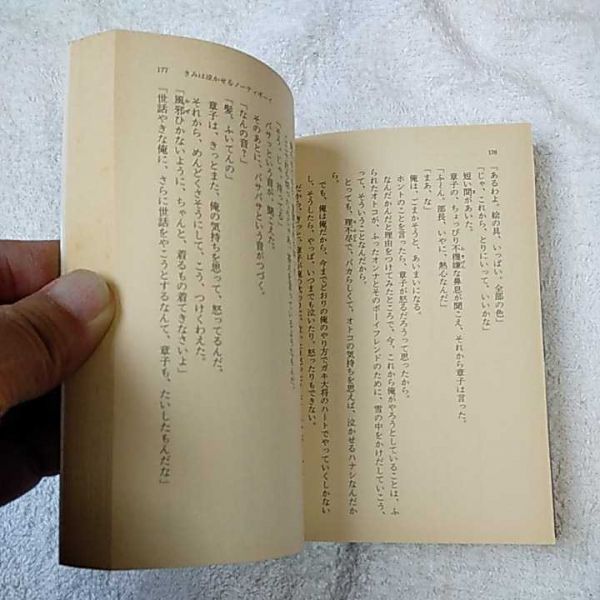 176
「あるわよ、絵の具、いっぱい、全部の色」
「じゃ、これから、とりにいって、いいかな」
短い間があいた。
章子の、ちょっぴり不機嫌な鼻息が聞こえ、それから章子は言った。
「ふーん、部長、いやに、熱心なんだ」
「まあ、な」
俺は、ごまかそうと、あいまいになる。
ホントのことを言ったら、章子が怒るだろうって思ったから。
なんだかんだと理由をつけてみたところで、今、これから俺がやろうとしていることは、ふ
られたオトコが、ふったオンナとそのボーイフレンドのために、雪の中をかけだしていこう、
って、そういうことなんだから。
とっても、理不尽で、バカらしくて、オトコの気持ちを思えば、泣かせるハナシなんだか
ら。
でも、俺は俺だから、今までどおりの俺のやり方でガキ大将のハートでやっていくしかない
し、そうしたら、やっぱ、いつまでも泣いたり、怒ったりもできない。
177 きみは泣かせるノーティボーイ
バサッという音が、聞こえた。
そのあとに、バサバサという音がつづく。
「なんの音？」
「髪、ふいてんの」
章子は、きっとまた、俺の気持ちを思って、怒ってるんだ。
それから、めんどくさそうにして、こう、つけくわえた。
「風邪ひかないように、ちゃんと、着るもの着てきなさいよ」
「世話やきな俺に、さらに世話をやこうとするなんて、章子も、たいしたもんだな」